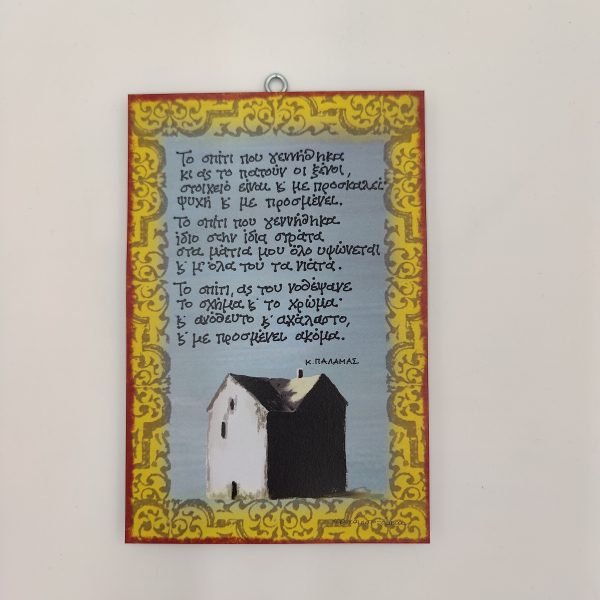 Το σπίτι που γεννήθηκα
κι ας το πατούν οι ξένοι,
στοιχειό είναι κ' με προσκαλεί·
ψυχή κ' με προσμένει.
Το σπίτι που γεννήθηκα
ίδιο στην ίδια στράτα
στα μάτια μου όλο υψώνεται
κ' μ' όλα του τα νιάτα.
Το σπίτι, ας του νοθέψανε
το σχήμα κ' το χρώμα·
κ' ανόθευτο κ' αχάλαστο,
κ' με προσμένει ακόμα.
Κ. ΠΑΛΑΜΑΣ